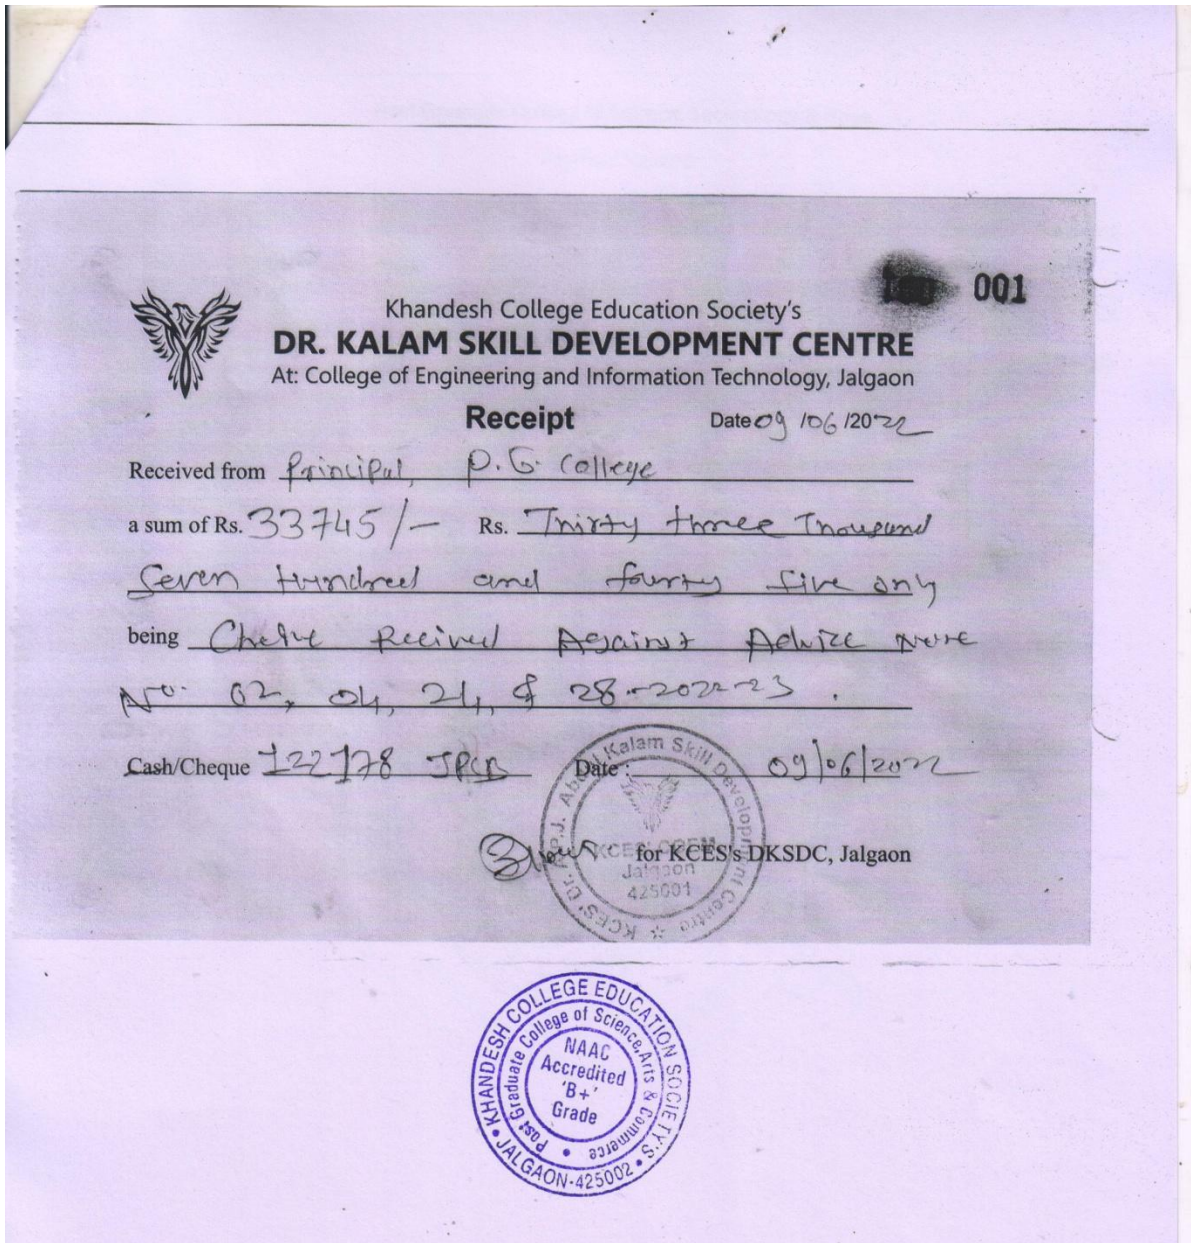 001
Khandesh College Education Society's
DR. KALAM SKILL DEVELOPMENT CENTRE
At: College of Engineering and Information Technology, Jalgaon
Receipt Date 09/06/2022
Received from Principal, P.G. College
a sum of Rs. 33745/- Rs. Thirty three Thousand
Seven Hundred and fourty five only
being Received Against Advice Note
No. 02, 04, 24, & 28-2022-23.
Cash/Cheque 122178 JPCB Date: 09/06/2022
for KCES's DKSDC, Jalgaon
KCES' Dr. A.P.J. Abdul Kalam Skill Development Centre
KCES' COEM
Jalgaon
425001
KHANDESH COLLEGE EDUCATION SOCIETY'S
Post Graduate College of Science, Arts & Commerce
NAAC
Accredited
'B+'
Grade
JALGAON-425002